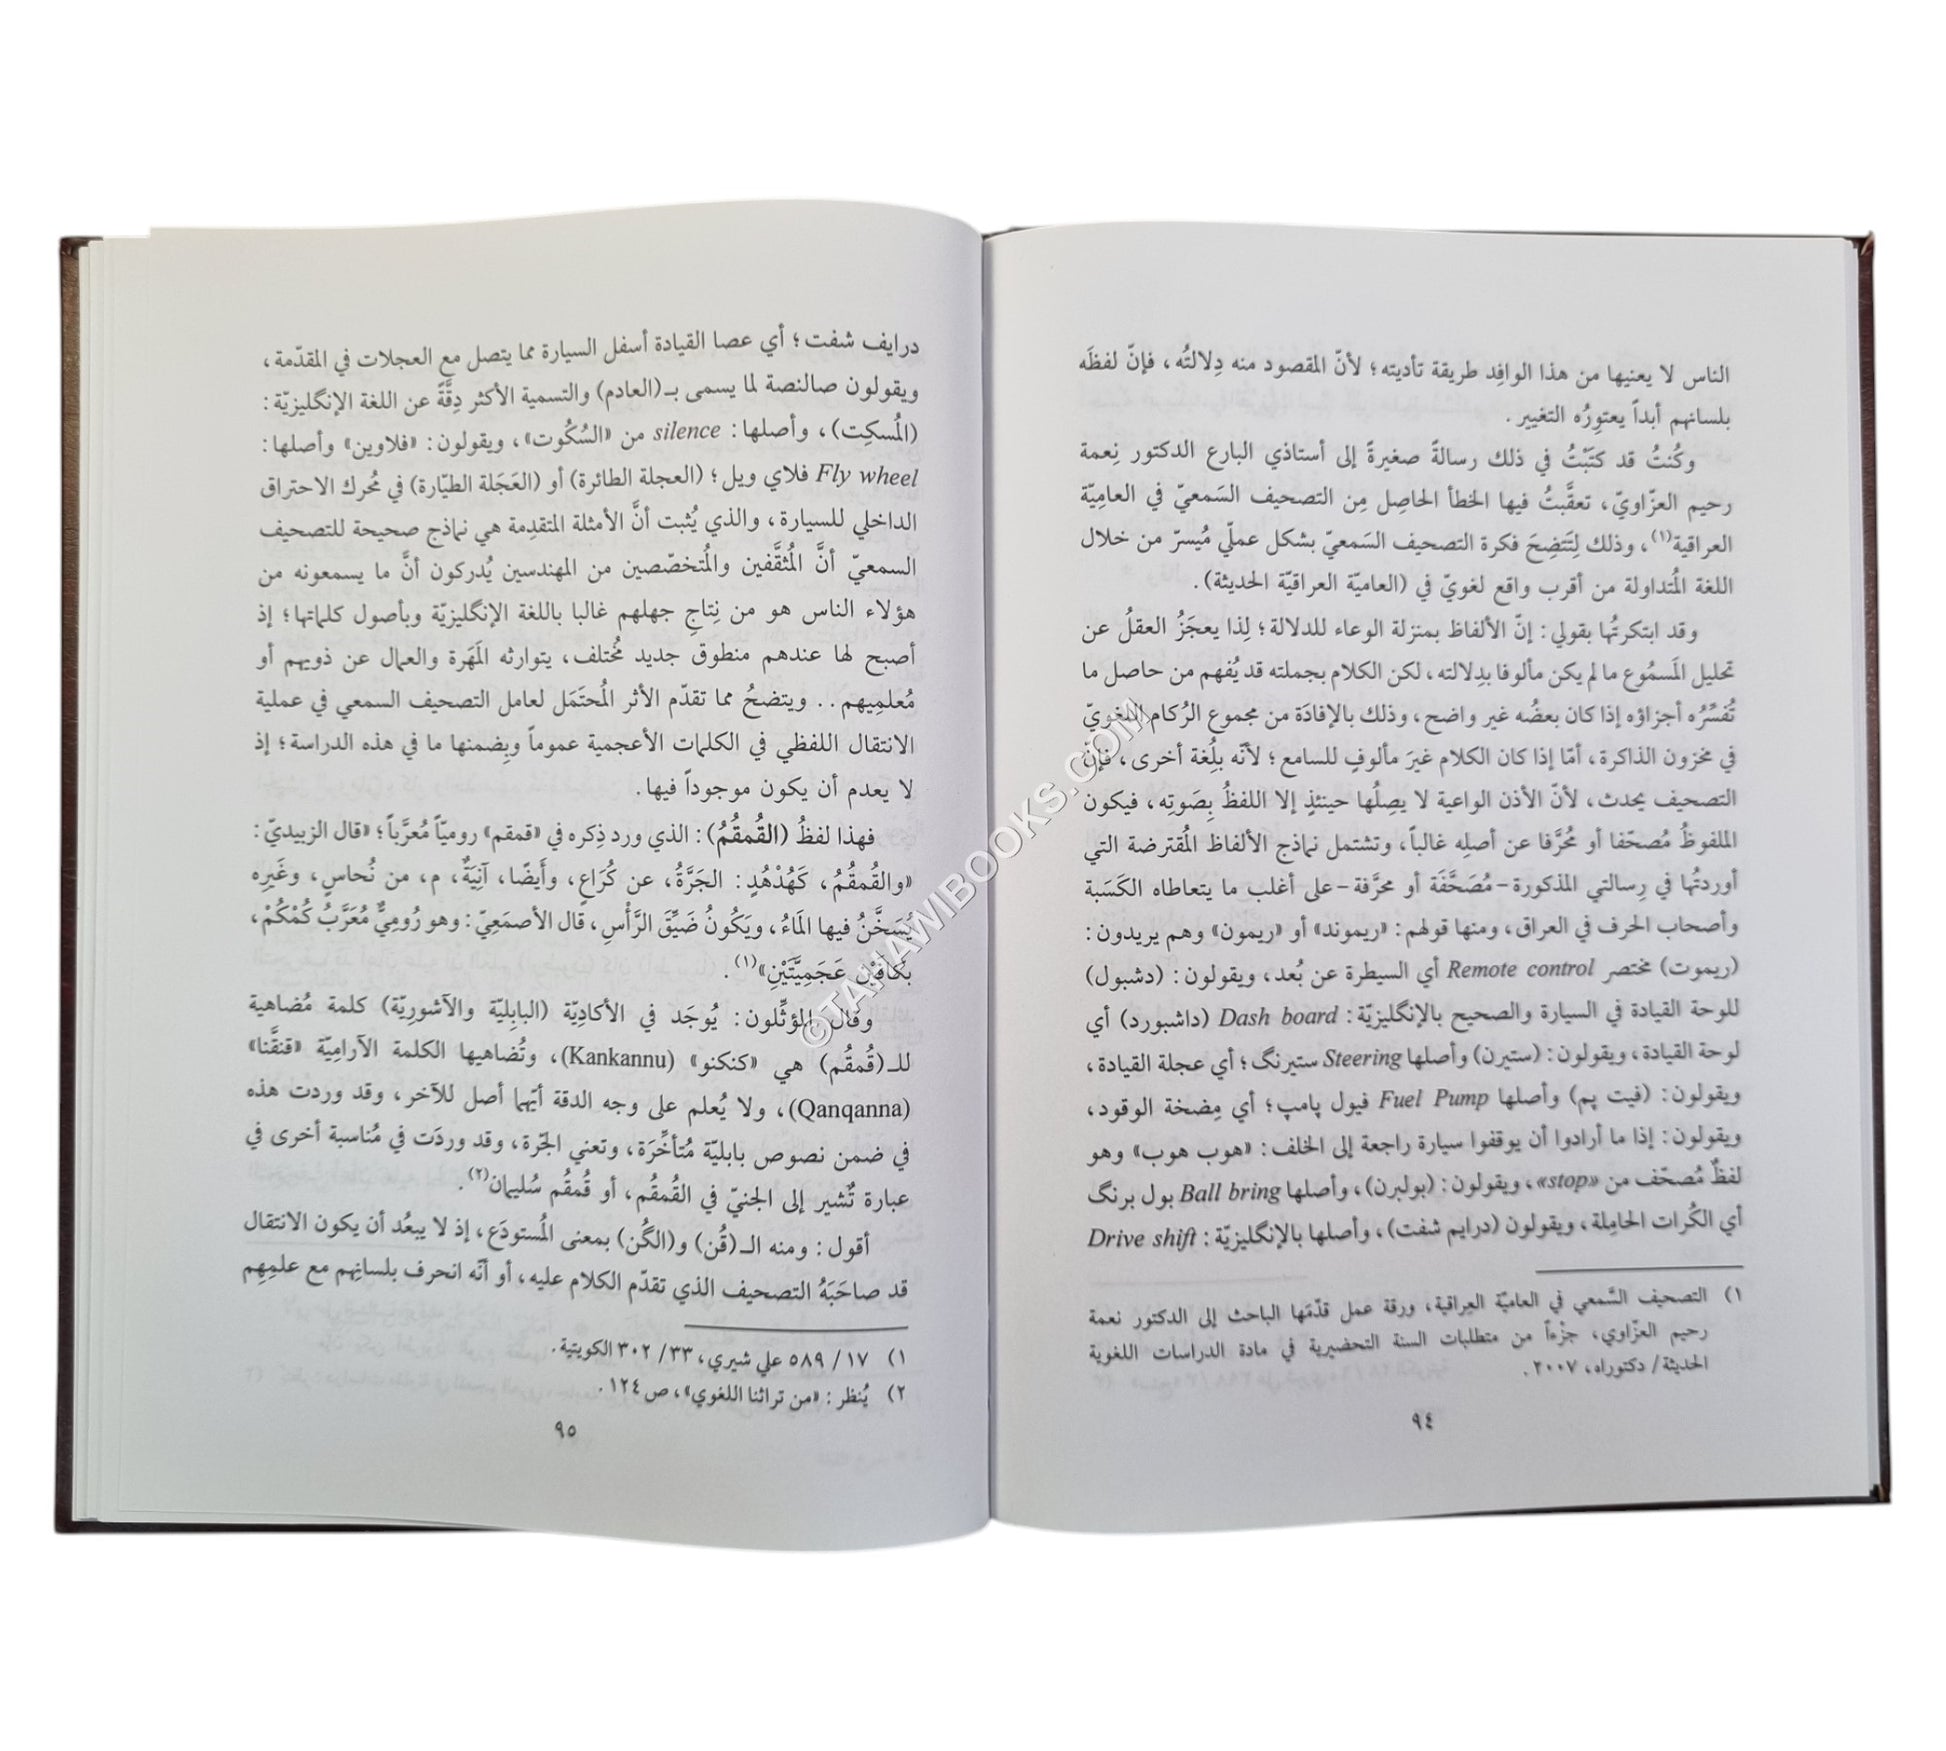 الناس لا يعنيها من هذا الوافِد طريقة تأديته؛ لأنّ المقصود منه دِلالتُه، فإنّ لفظَه
بلسانهم أبداً يعتوِرُه التغيير.
وكُنتُ قد كتَبْتُ في ذلك رسالةً صغيرةً إلى أستاذي البارع الدكتور نِعمة
رحيم العزّاويّ، تعقَّبتُ فيها الخطأ الحاصِل مِن التصحيف السَمعيّ في العامِيّة
العراقية(١)، وذلك لِتَتضِحَ فكرة التصحيف السَمعيّ بشكل عمليّ مُيسرّ من خلال
اللغة المُتداولة من أقرب واقع لغويّ في (العاميّة العراقيّة الحديثة).
وقد ابتكرتُها بقولي: إنّ الألفاظ بمنزلة الوعاء للدلالة؛ لِذا يعجَزُ العقلُ عن
تحليل المَسمُوع ما لم يكن مألوفا بدِلالته، لكن الكلام بجملته قد يُفهم من حاصل ما
تُفسِّرُه أجزاؤه إذا كان بعضُه غير واضح، وذلك بالإفادَة من مجموع الرُكام اللغويّ
في مخزون الذاكرة، أمّا إذا كان الكلام غيرَ مألوفٍ للسامع؛ لأنّه بلُغة أخرى، فإنّ
التصحيف يحدث، لأنّ الأذن الواعية لا يصِلُها حينئذٍ إلا اللفظُ بِصَوتِه، فيكون
الملفوظُ مُصحّفا أو مُحرَّفا عن أصلِه غالباً، وتشتمل نماذج الألفاظ المُقترضة التي
أوردتُها في رِسالتي المذكورة-مُصَحَّفَة أو محرَّفة-على أغلب ما يتعاطاه الكَسَبة
وأصحاب الحرف في العراق، ومنها قولهم: «ريموند» أو «ريمون» وهم يريدون:
(ريموت) مختصر Remote control أي السيطرة عن بُعد، ويقولون: (دشبول)
للوحة القيادة في السيارة والصحيح بالإنگليزيّة: Dash board (داشبورد) أي
لوحة القيادة، ويقولون: (ستيرن) وأصلها Steering ستيرنگ؛ أي عجلة القيادة،
ويقولون: (فيت پم) وأصلها Fuel Pump فيول پامپ؛ أي مِضخة الوقود،
ويقولون: إذا ما أرادوا أن يوقفوا سيارة راجعة إلى الخلف: «هوب هوب» وهو
لفظٌ مُصحّف من «stop»، ويقولون: (بولبرن)، وأصلها Ball bring بول برنگ
أي الكُرات الحامِلة، ويقولون (درايم شفت)، وأصلها بالإنگليزيّة: Drive shift
١) التصحيف السَّمعي في العاميّة العِراقية، ورقة عمل قدّمَها الباحث إلى الدكتور نعمة
رحيم العزّاوي، جزْءاً من متطلبات السنة التحضيرية في مادة الدراسات اللغوية
الحديثة/ دكتوراه، ٢٠٠٧.
٩٤
درايف شفت؛ أي عصا القيادة أسفل السيارة مما يتصل مع العجلات في المقدّمة،
ويقولون صالنصة لما يسمى بـ(العادم) والتسمية الأكثر دِقَّةً عن اللغة الإنگليزيّة:
(المُسكِت)، وأصلها: silence من «السُكُوت»، ويقولون: «فلاوين» وأصلها:
Fly wheel فلاي ويل؛ (العجلة الطائرة) أو (العَجَلة الطيّارة) في مُحرك الاحتراق
الداخلي للسيارة، والذي يُثبت أنَّ الأمثلة المتقدِمة هي نماذج صحيحة للتصحيف
السمعيّ أنَّ المُثقَّفين والمُتخصّصين من المهندسين يُدركون أنَّ ما يسمعونه من
هؤلاء الناس هو من نِتاجِ جهلهم غالبا باللغة الإنگليزيّة وبأصول كلماتها؛ إذ
أصبح لها عندهم منطوق جديد مُختلف، يتوارثه المَهَرة والعمال عن ذويهم أو
مُعلمِيهم.. ويتضحُ مما تقدّم الأثر المُحتَمَل لعامل التصحيف السمعي في عملية
الانتقال اللفظي في الكلمات الأعجمية عموماً وبِضمنها ما في هذه الدراسة؛ إذ
لا يعدم أن يكون موجوداً فيها.
فهذا لفظُ (القُمقُمُ): الذي ورد ذِكره في «قمقم» روميّاً مُعرَّباً؛ «قال الزبيديّ:
«والقُمقُمُ، كَهُدْهُدٍ: الجَرَّةُ، عن كُرَاعٍ، وأَيضًا، آنِيَةٌ، م، من نُحاسٍ، وغَيرِه
يُسَخَّنُ فيها المَاءُ، ويَكُونُ ضَيِّقَ الرَّأسِ، قال الأصمَعِيّ: وهو رُومِيٌّ مُعَرَّبُ كُمْكُمْ،
بكَافَيْنِ عَجَمِيَّتَيْنِ»(١).
وقال المؤثِّلون: يُوجَد في الأكادِيّة (البابِليّة والآشورِيّة) كلمة مُضاهية
للـ(قُمقُم) هي «كنكنو» (Kankannu)، وتُضاهيها الكلمة الآراميّة «قنقَّنا»
(Qanqanna)، ولا يُعلم على وجه الدقة أيّهما أصل للآخر، وقد وردت هذه
في ضمن نصوص بابليّة مُتأخِّرَة، وتعني الجّرة، وقد وردَت في مُناسبة أخرى في
عبارة تٌشير إلى الجنيّ في القُمقُم، أو قُمقُم سُليمان(٢).
أقول: ومنه الـ(قُن) و(الگُن) بمعنى المُستودَع، إذ لا يبعُد أن يكون الانتقال
قد صاحَبَهُ التصحيف الذي تقدّم الكلام عليه، أو أنّه انحرف بلسانِهم مع علمِهِم
١) ١٧/ ٥٨٩ علي شيري، ٣٣/ ٣٠٢ الكويتية.
٢) يُنظر: «من تراثنا اللغوي»، ص١٢٤.
٩٥
©TAHAWIBOOKS.COM